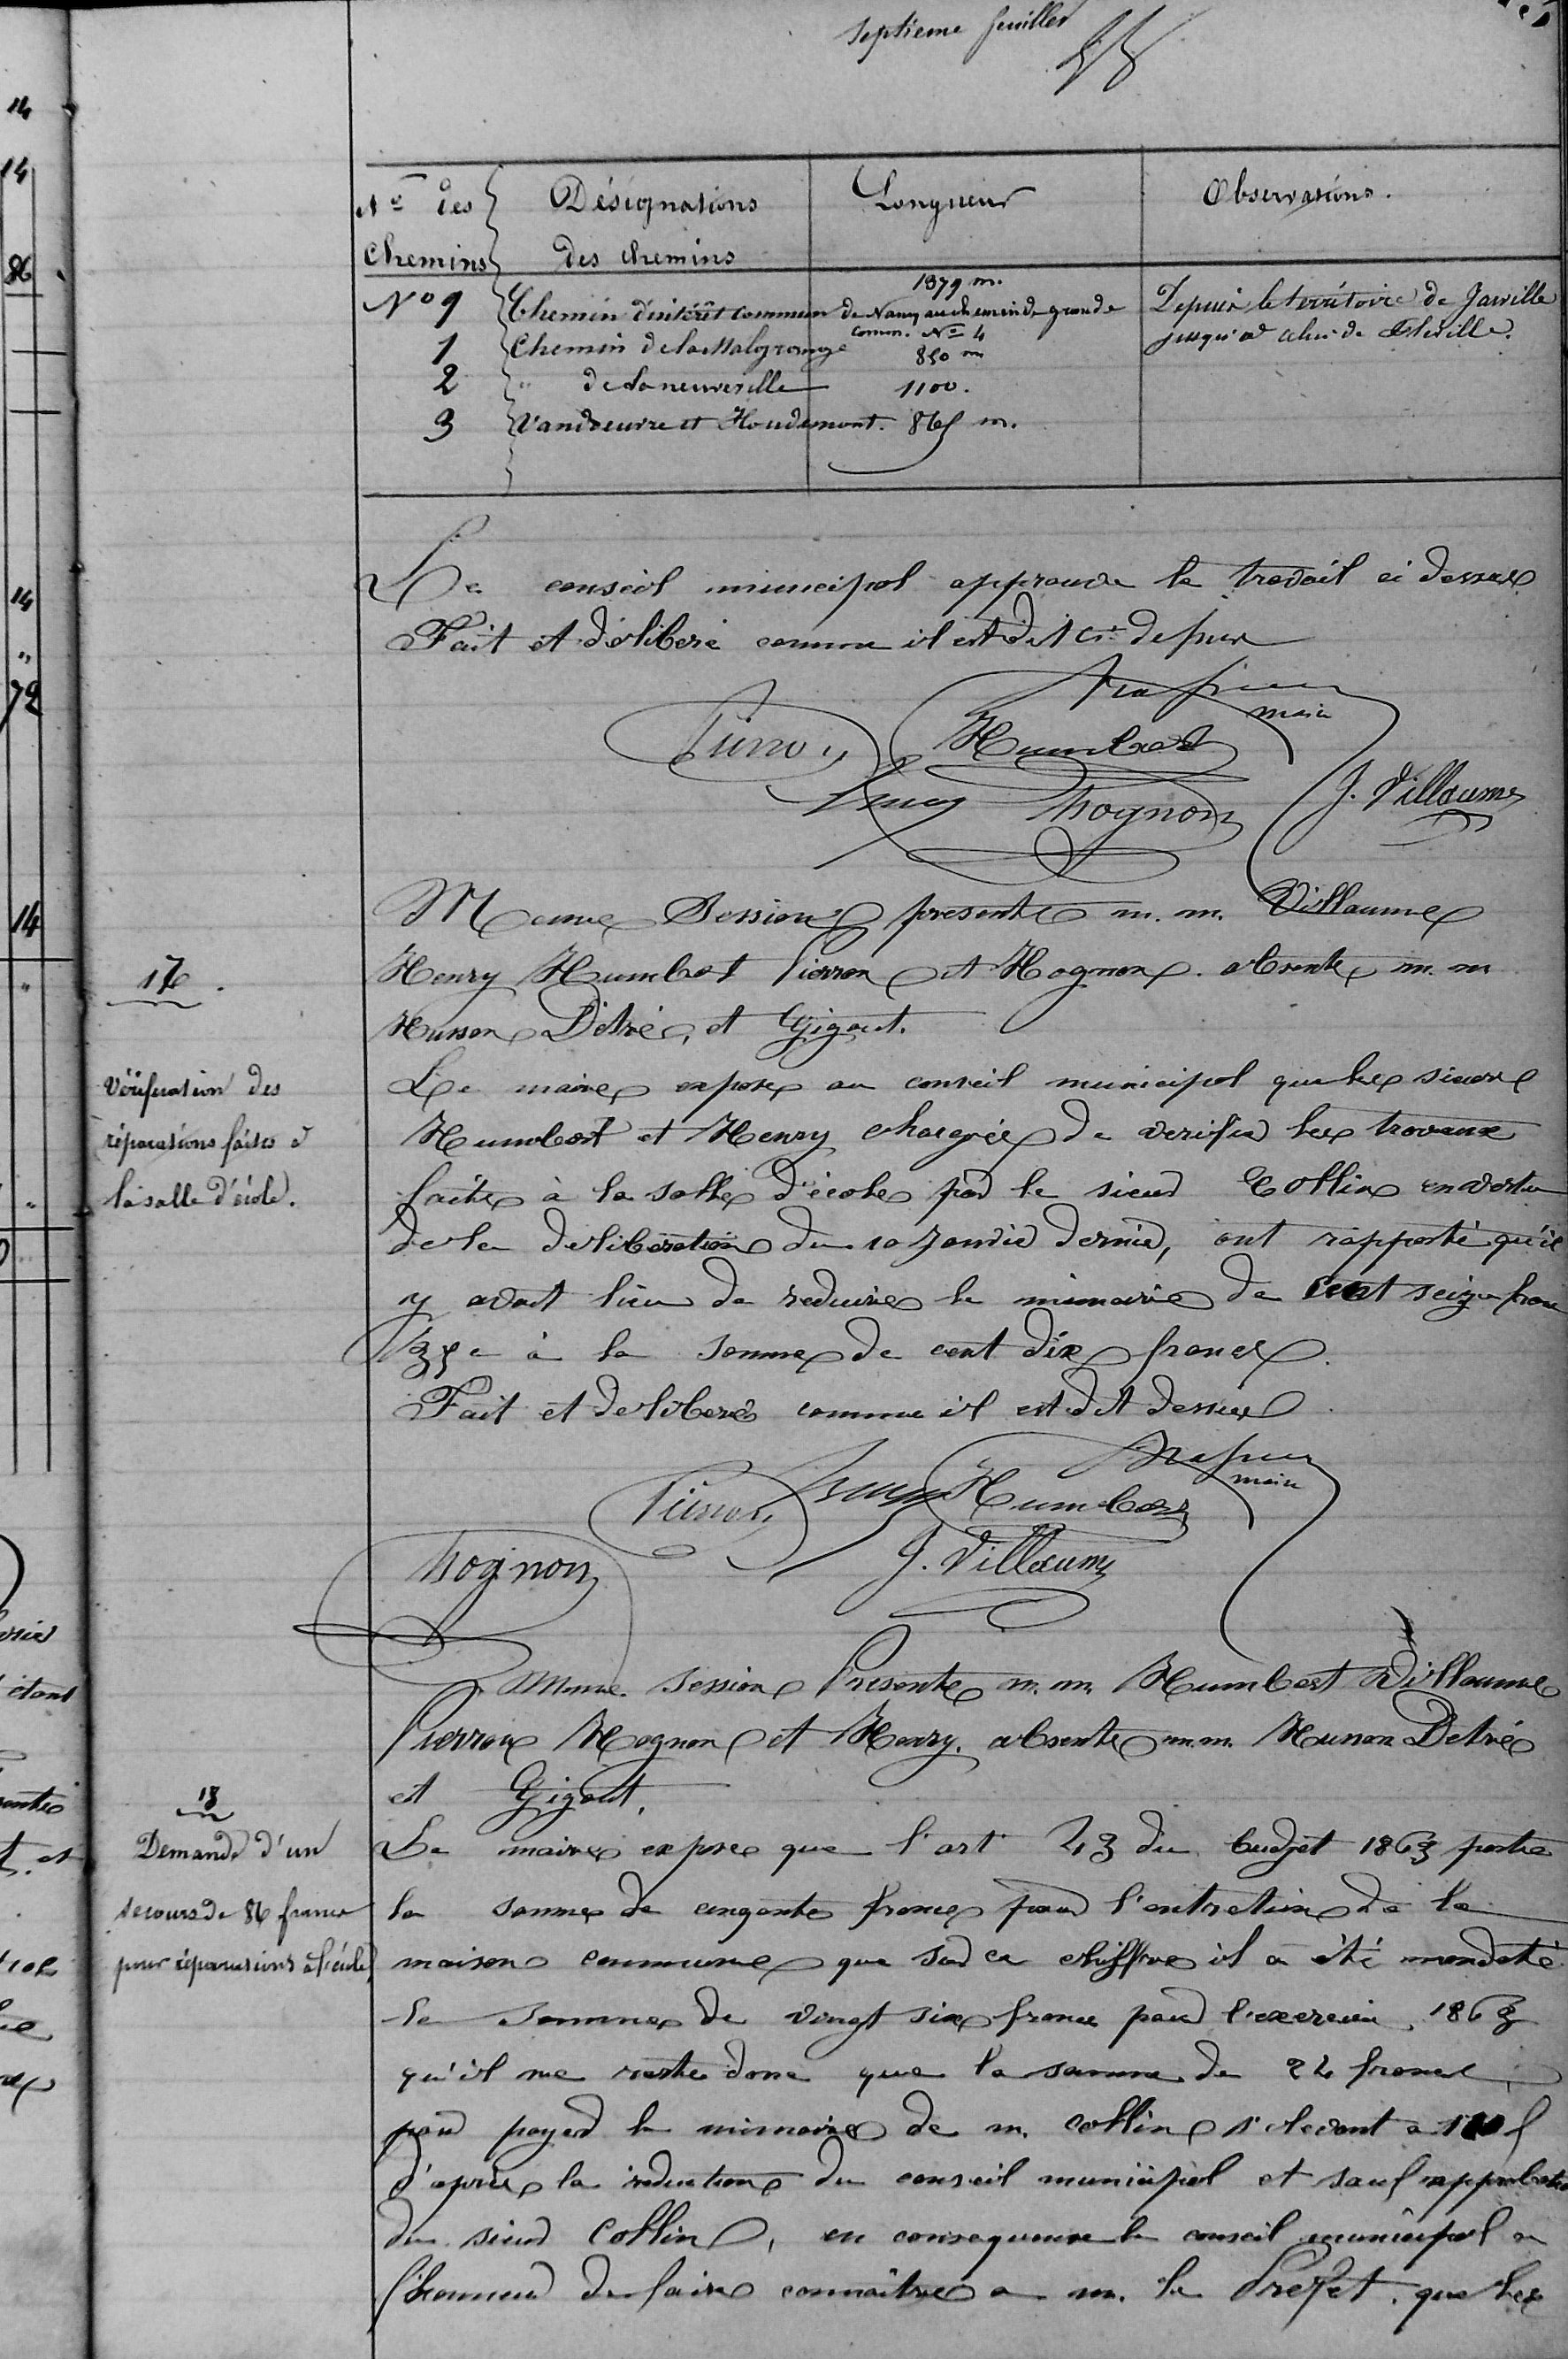 septieme feuillet
N° des Désignations Longueur Observations.
Chemins des chemins
1379 m.
N° 9 Chemin d'intérêt commun de Nancy au chemin de grande Depuis le territoire de Jarville
comm. N° 4 jusqu'à celui de Fléville.
1 Chemin de la Malgrange 850 m
2 " de Laneuveville 1100.
3 Vandoeuvre et Houdemont. 865 m.
Le conseil municipal approuve le travail ci dessus
Fait et déliberé comme il est dit ci depus
maire
Pierron Humbert
Henry hognon J. Villaume
Meme Session presents m. m. Villaume
Henry Humbert Pierron et Hognon. absents m. m
Husson Détré, et Gigout.
17.
Vérification des
réparations faites à
la salle d'école.
Le maire expose au conseil municipal que les sieurs
Humbert et Henry chargées de verifier les travaux
faites à la salle d'école par le sieur Collin en vertu
de la deliberation du 10 Janvier dernier, ont rapporté qu'il
y avait lieu de reduire le mimoire de Cent seize franc
35 c à la somme de cent dix francs.
Fait et deliberé comme il est dit dessus
maire
Pierron Henry Humbert
hognon J. Villaume
Meme session Presents m. m. Humbert Villaume
Pierron Hognon et Henry. absents m. m. Husson Detré
et Gigout.
18
Demande d'un
secours de 86 francs
pour réparations à l'école
Le maire expose que l'art 43 du budjet 1863 porte
la somme de cinqante francs pour l'entretien de la
maison commune que sur ce chiffre il a été mendaté
la somme de vingt six francs pour l'exercice 1863
qu'il ne reste donc que la somme de 24 francs
pour payer le mimoire de m. Collin s'elevant a 110 f
d'après la reduction du conseil municipal et sauf approbation
du sieur Collin, en consequence le conseil municipal a
l'honneur de faire connaître a m. le Prefet. que les